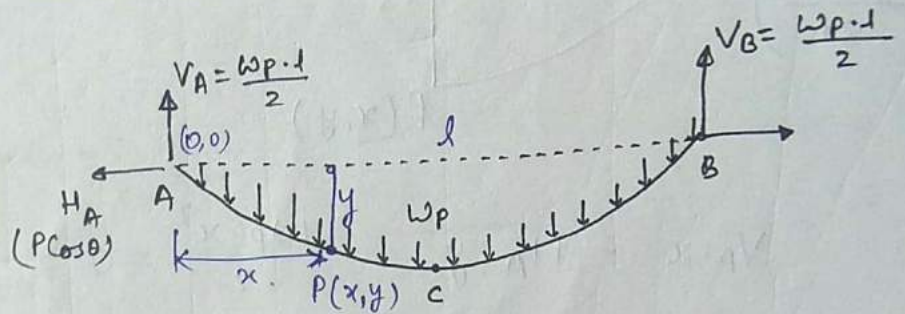 V_A = ωp·l / 2
V_B = ωp·l / 2
(0,0)
l
A
B
H_A
(P Cosθ)
y
ωp
x
P(x,y)
C